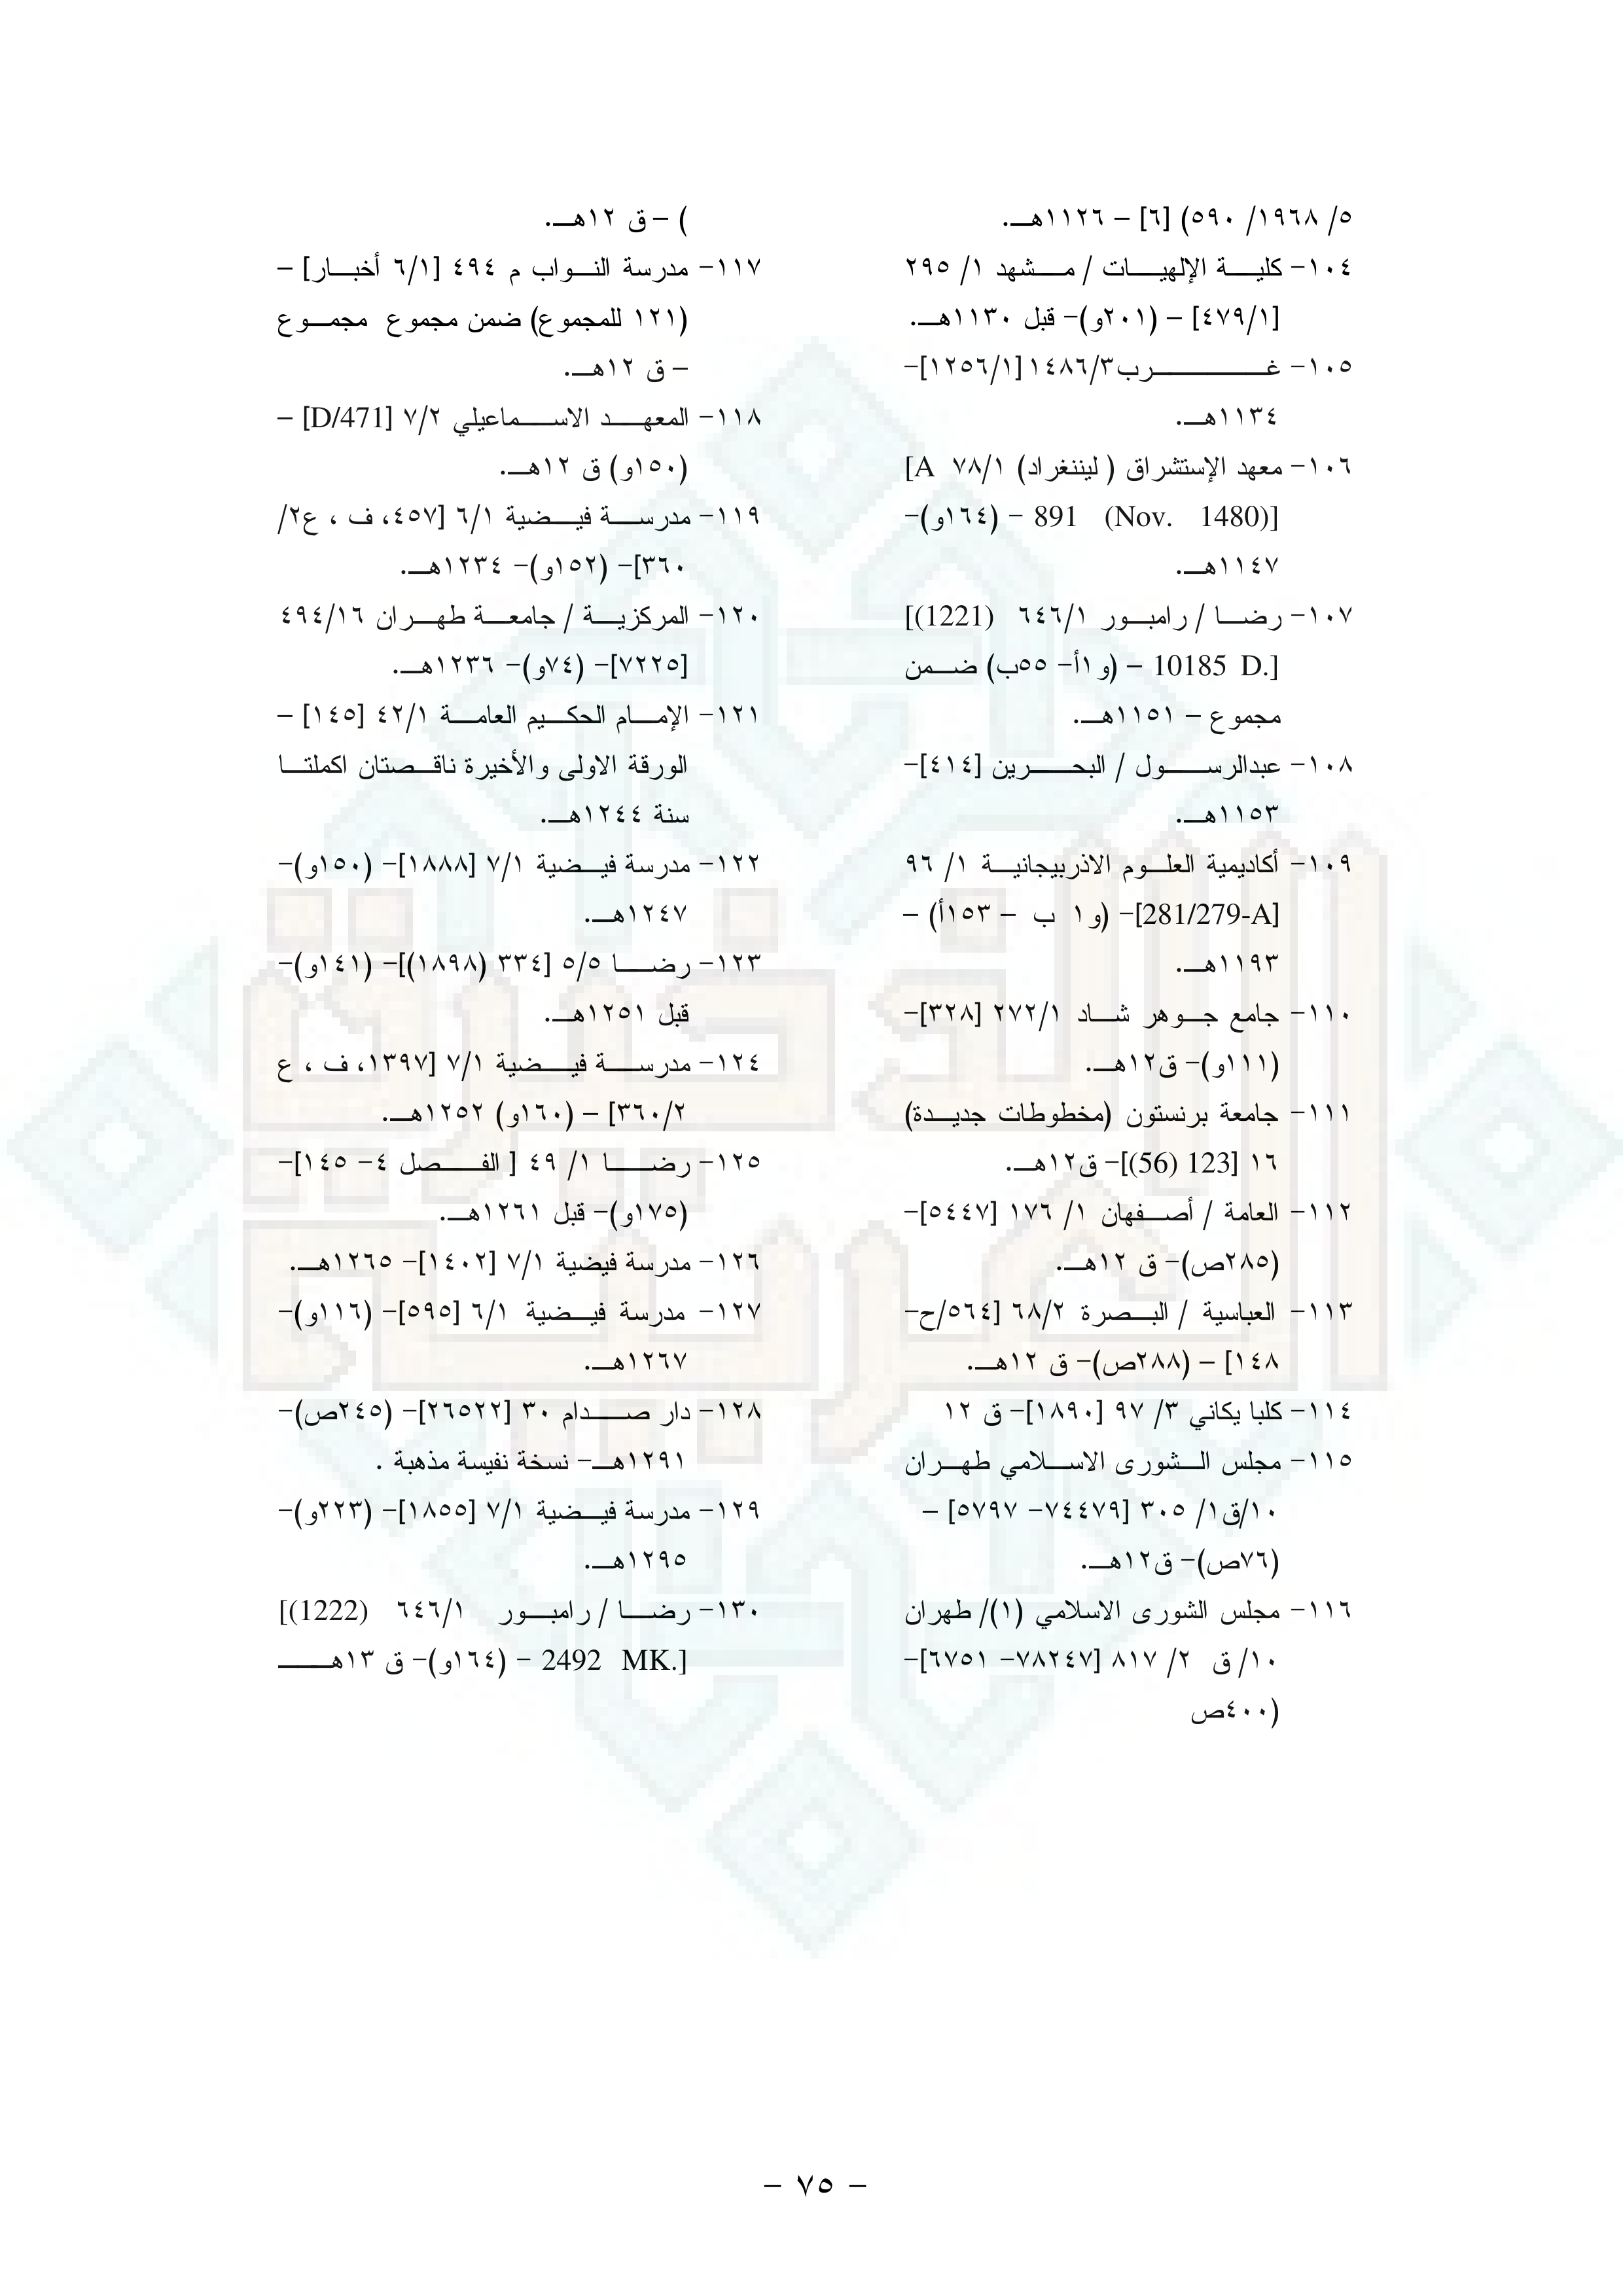 ٥/ ١٩٦٨/ ٥٩٠) [٦] – ١١٢٦هـ.
١٠٤- كلية الإلهيات / مشهد ١/ ٢٩٥
[٤٧٩/١] – (٢٠١و)- قبل ١١٣٠هـ.
١٠٥- غرب١٤٨٦/٣ [١٢٥٦/١]-
١١٣٤هـ.
١٠٦- معهد الإستشراق ( ليننغراد) ٧٨/١ A]
891 (Nov. 1480)] – (١٦٤و)-
١١٤٧هـ.
١٠٧- رضا / رامبور ٦٤٦/١ (1221)]
10185 D.] – (و١أ- ٥٥ب) ضمن
مجموع – ١١٥١هـ.
١٠٨- عبدالرسول / البحرين [٤١٤]-
١١٥٣هـ.
١٠٩- أكاديمية العلوم الاذربيجانية ١/ ٩٦
[281/279-A]- (و١ ب – ١٥٣أ) –
١١٩٣هـ.
١١٠- جامع جوهر شاد ٢٧٢/١ [٣٢٨]-
(١١١و)- ق١٢هـ.
١١١- جامعة برنستون (مخطوطات جديدة)
١٦ [123 (56)]- ق١٢هـ.
١١٢- العامة / أصفهان ١/ ١٧٦ [٥٤٤٧]-
(٢٨٥ص)- ق ١٢هـ.
١١٣- العباسية / البصرة ٦٨/٢ [٥٦٤/ح-
١٤٨] – (٢٨٨ص)- ق ١٢هـ.
١١٤- كلبا يكاني ٣/ ٩٧ [١٨٩٠]- ق ١٢
١١٥- مجلس الشورى الاسلامي طهران
١٠/ق١/ ٣٠٥ [٧٤٤٧٩- ٥٧٩٧] –
(٧٦ص)- ق١٢هـ.
١١٦- مجلس الشورى الاسلامي (١)/ طهران
١٠/ ق ٢/ ٨١٧ [٧٨٢٤٧- ٦٧٥١]-
(٤٠٠ص
) – ق ١٢هـ.
١١٧- مدرسة النواب م ٤٩٤ [٦/١ أخبار] –
(١٢١ للمجموع) ضمن مجموع مجموع
– ق ١٢هـ.
١١٨- المعهد الاسماعيلي ٧/٢ [D/471] –
(١٥٠و) ق ١٢هـ.
١١٩- مدرسة فيضية ٦/١ [٤٥٧، ف ، ع٢/
٣٦٠]- (١٥٢و)- ١٢٣٤هـ.
١٢٠- المركزية / جامعة طهران ٤٩٤/١٦
[٧٢٢٥]- (٧٤و)- ١٢٣٦هـ.
١٢١- الإمام الحكيم العامة ٤٢/١ [١٤٥] –
الورقة الاولى والأخيرة ناقصتان اكملتا
سنة ١٢٤٤هـ.
١٢٢- مدرسة فيضية ٧/١ [١٨٨٨]- (١٥٠و)-
١٢٤٧هـ.
١٢٣- رضا ٥/٥ [٣٣٤ (١٨٩٨)]- (١٤١و)-
قبل ١٢٥١هـ.
١٢٤- مدرسة فيضية ٧/١ [١٣٩٧، ف ، ع
٣٦٠/٢] – (١٦٠و) ١٢٥٢هـ.
١٢٥- رضا ١/ ٤٩ [ الفصل ٤- ١٤٥]-
(١٧٥و)- قبل ١٢٦١هـ.
١٢٦- مدرسة فيضية ٧/١ [١٤٠٢]- ١٢٦٥هـ.
١٢٧- مدرسة فيضية ٦/١ [٥٩٥]- (١١٦و)-
١٢٦٧هـ.
١٢٨- دار صدام ٣٠ [٢٦٥٢٢]- (٢٤٥ص)-
١٢٩١هـ- نسخة نفيسة مذهبة .
١٢٩- مدرسة فيضية ٧/١ [١٨٥٥]- (٢٢٣و)-
١٢٩٥هـ.
١٣٠- رضا / رامبور ٦٤٦/١ (1222)]
2492 MK.] – (١٦٤و)- ق ١٣هـ
– ٧٥ –